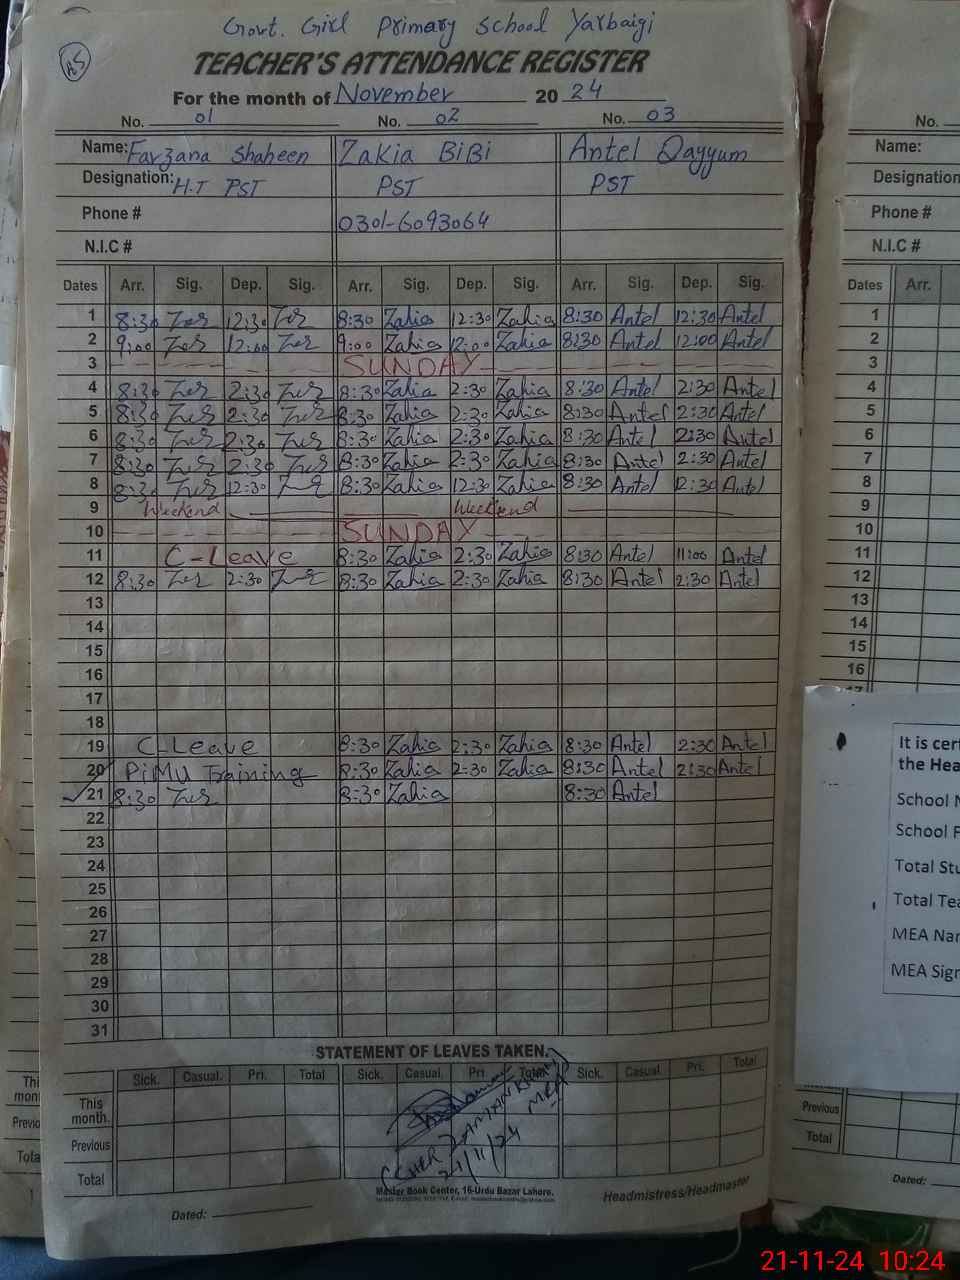 Govt. Girl Primary School Yarbaigi
AS
TEACHER'S ATTENDANCE REGISTER
For the month of November 20 24
No. 01 No. 02 No. 03 No.
Name: Farzana Shaheen Zakia BiBi Antel Qayyum Name:
Designation: H.T PST PST PST Designation
Phone # 0301-6093064 Phone #
N.I.C # N.I.C #
Dates Arr. Sig. Dep. Sig. Arr. Sig. Dep. Sig. Arr. Sig. Dep. Sig. Dates Arr.
1 8:30 12:30 8:30 Zakia 12:30 Zakia 8:30 Antel 12:30 Antel 1
2 9:00 12:00 9:00 Zakia 12:00 Zakia 8:30 Antel 12:00 Antel 2
3 SUNDAY 3
4 8:30 2:30 8:30 Zakia 2:30 Zakia 8:30 Antel 2:30 Antel 4
5 8:30 2:30 8:30 Zakia 2:30 Zakia 8:30 Antel 2:30 Antel 5
6 8:30 2:30 8:30 Zakia 2:30 Zakia 8:30 Antel 2:30 Antel 6
7 8:30 2:30 8:30 Zakia 2:30 Zakia 8:30 Antel 2:30 Antel 7
8 8:30 12:30 8:30 Zakia 12:30 Zakia 8:30 Antel 12:30 Antel 8
9 Weekend Weekend 9
10 SUNDAY 10
11 C-Leave 8:30 Zakia 2:30 Zakia 8:30 Antel 11:00 Antel 11
12 8:30 2:30 8:30 Zakia 2:30 Zakia 8:30 Antel 2:30 Antel 12
13 13
14 14
15 15
16 16
17 17
18
19 C-Leave 8:30 Zakia 2:30 Zakia 8:30 Antel 2:30 Antel
20 PiMU Training 8:30 Zakia 2:30 Zakia 8:30 Antel 2:30 Antel
21 8:30 8:30 Zakia 8:30 Antel
22
23
24
25
26
27
28
29
30
31
It is cer
the Hea
School N
School F
Total Stu
Total Tea
MEA Nar
MEA Sign
STATEMENT OF LEAVES TAKEN.
Sick. Casual. Pri. Total Sick. Casual. Pri. Total Sick. Casual. Pri. Total
This month.
Previous Previous
Total Total
MEA
21/11/24
Master Book Center, 16-Urdu Bazar Lahore.
Dated: Headmistress/Headmaster Dated:
21-11-24 10:24